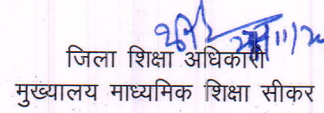 जिला शिक्षा अधिकारी
मुख्यालय माध्यमिक शिक्षा सीकर